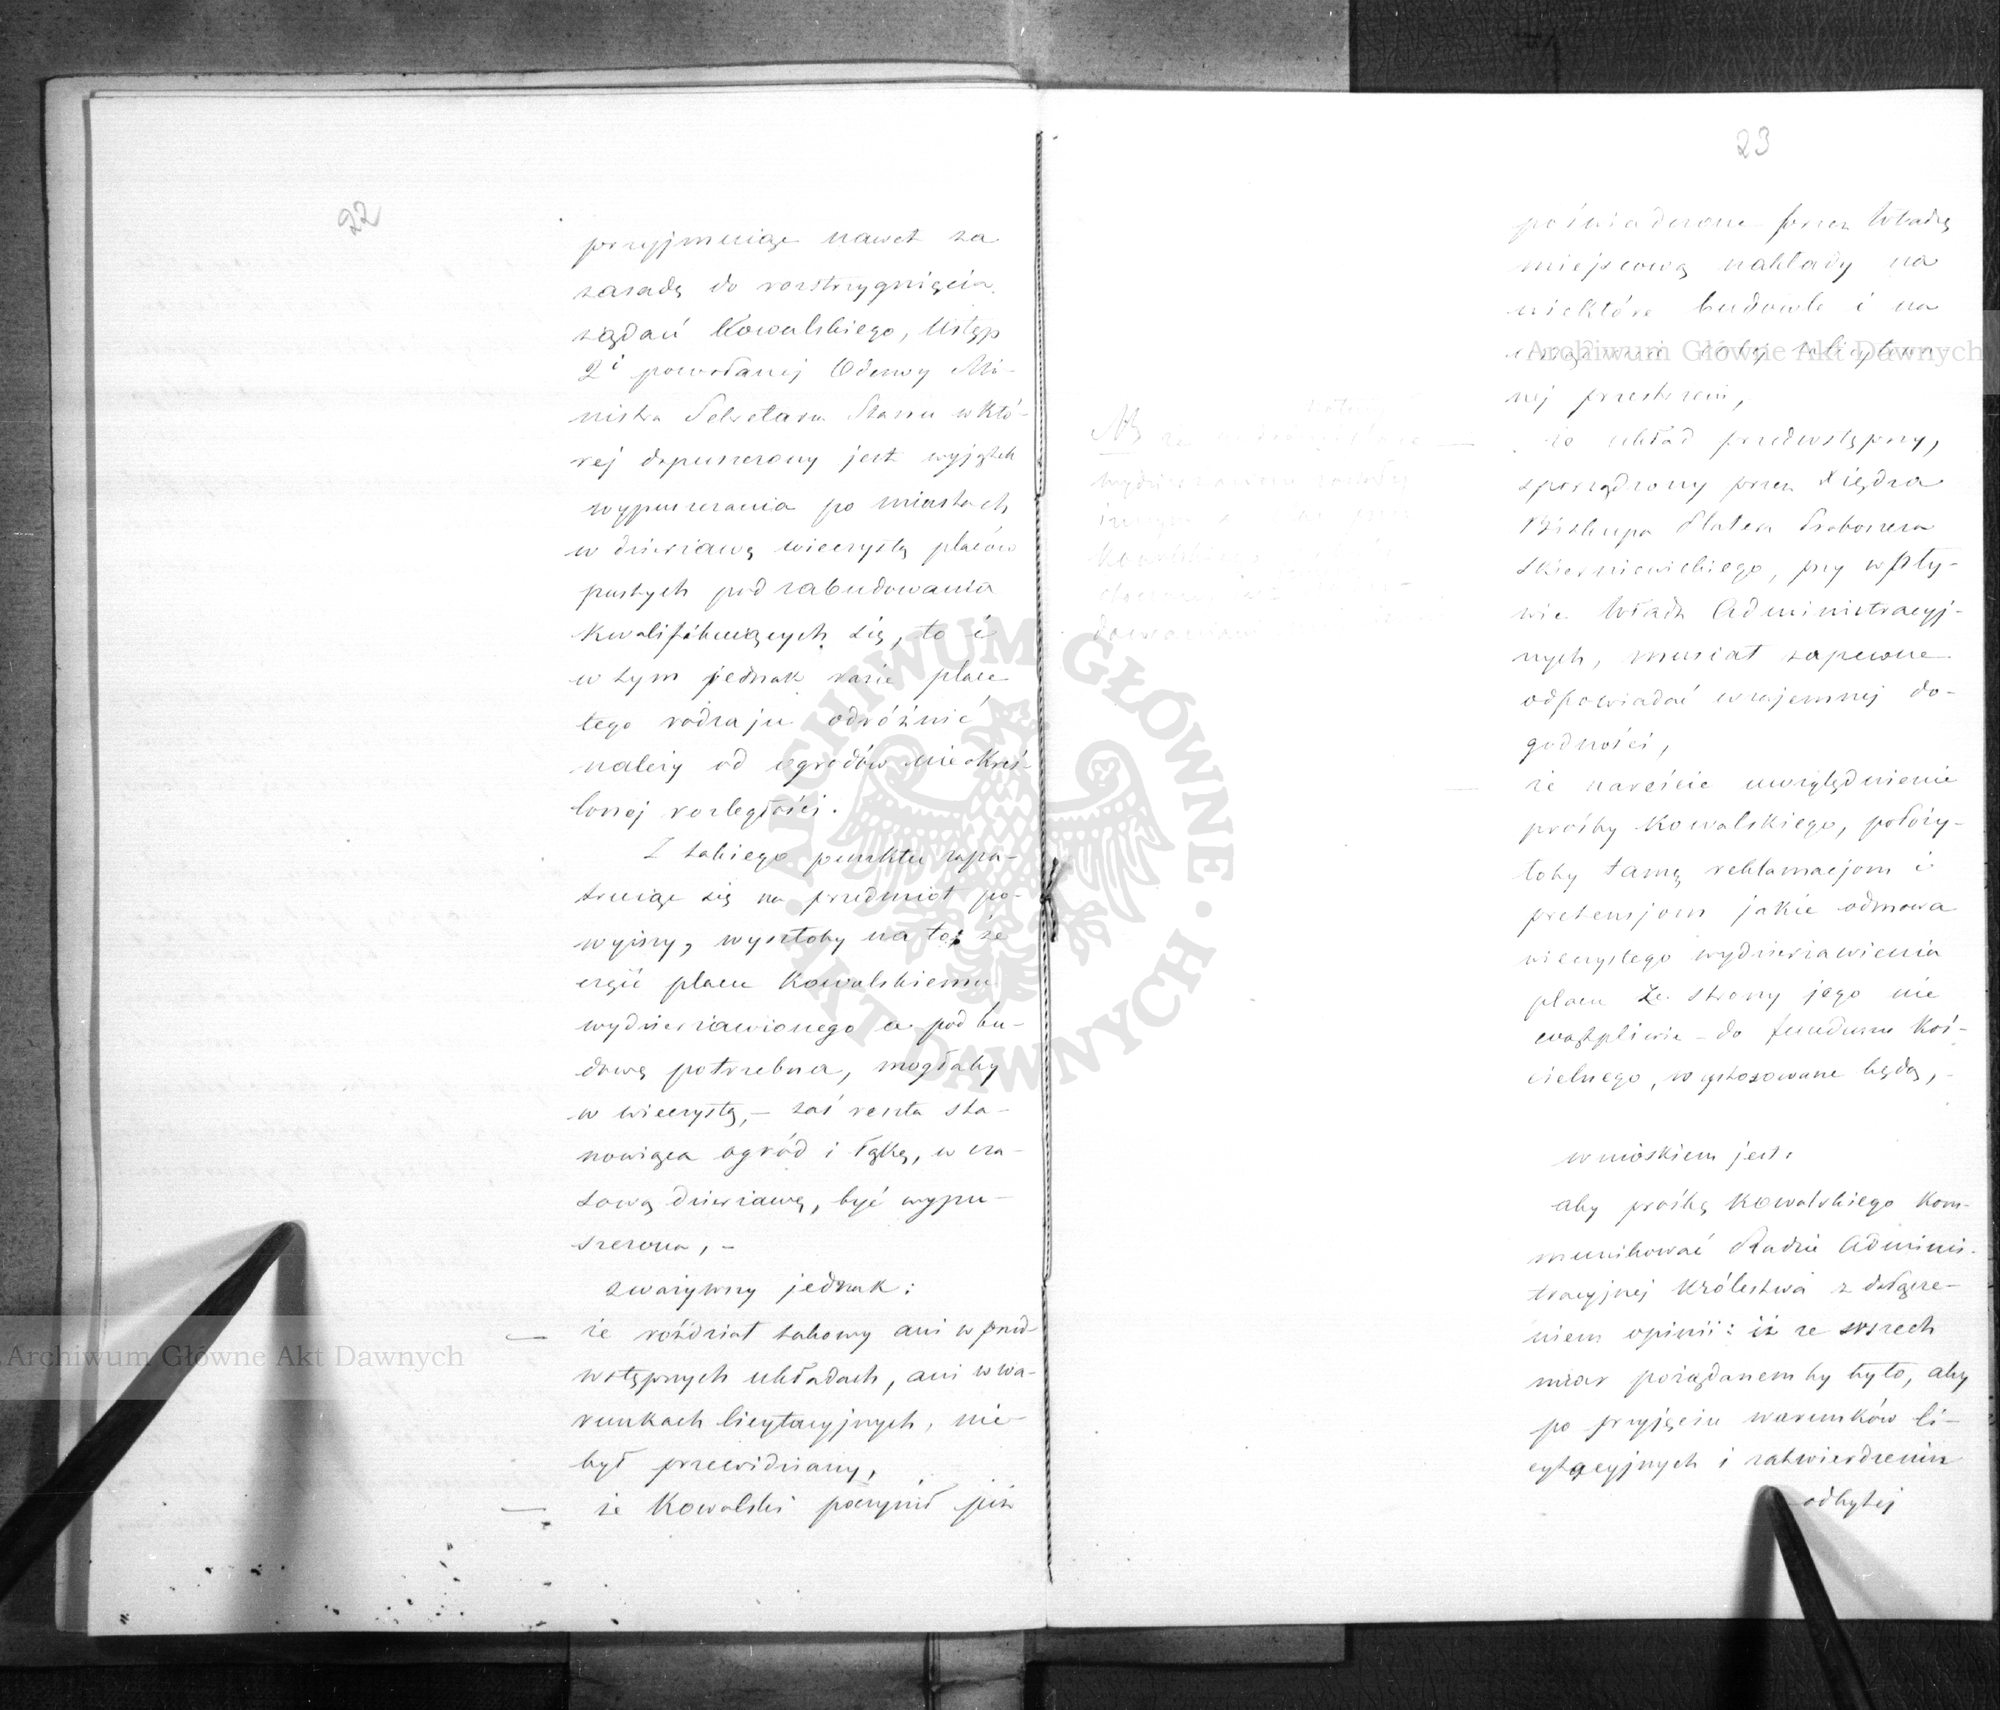 22
przyjmując nawet za
zasadę do rozstrzygnięcia
żądań Kowalskiego, Ustęp
2i powołanej Odezwy Mi-
nistra Sekretarza Stanu w któ-
rej dopuszczony jest wyjątek
wypuszczania po miastach
w dzierżawę wieczystą placów
pustych pod zabudowania
kwalifikujących się, to i
w tym jednak razie place
tego rodzaju odróżnić
należy od ogrodów nieokreś-
lonej rozległości.
Z takiego punktu zapa-
trując się na przedmiot po-
wyższy, wyszłoby na to, że
część placu Kowalskiemu
wydzierżawionego a pod bu-
dowę potrzebna, mogłaby
w wieczystą, — zaś reszta sta-
nowiąca ogród i łąkę, w cza-
sową dzierżawę, być wypu-
szczona, —
zważywszy jednak:
— że rozdział takowy ani w przed-
wstępnych układach, ani w wa-
runkach licytacyjnych, nie
był przewidziany,
— że Kowalski poczynił już
23
poświadczone przez Władzę
miejscową nakłady na
niektóre budowle i na
nej przestrzeni,
— że układ przedwstępny,
sporządzony przez Księdza
Biskupa Platera Proboszcza
Skierniewickiego, przy wpły-
wie Władz Administracyj-
nych, musiał zapewne
odpowiadać wzajemnej do-
godności,
— że nareście uwzględnienie
prośby Kowalskiego, położy-
łoby tamę reklamacjom i
pretensjom jakie odmowa
wieczystego wydzierżawienia
placu ze strony jego nie
wątpliwie do funduszu Koś-
cielnego, wystosowane będą, —
wnioskiem jest:
aby prośbę Kowalskiego kom-
munikować Radzie Adminis-
tracyjnej Królestwa z dołącze-
niem opinii: iż ze wszech
miar pożądanem by było, aby
po przyjęciu warunków li-
cytacyjnych i zatwierdzeniu
odbytej
Archiwum Główne Akt Dawnych
Archiwum Główne Akt Dawnych
ARCHIWUM GŁÓWNE · AKT DAWNYCH ·